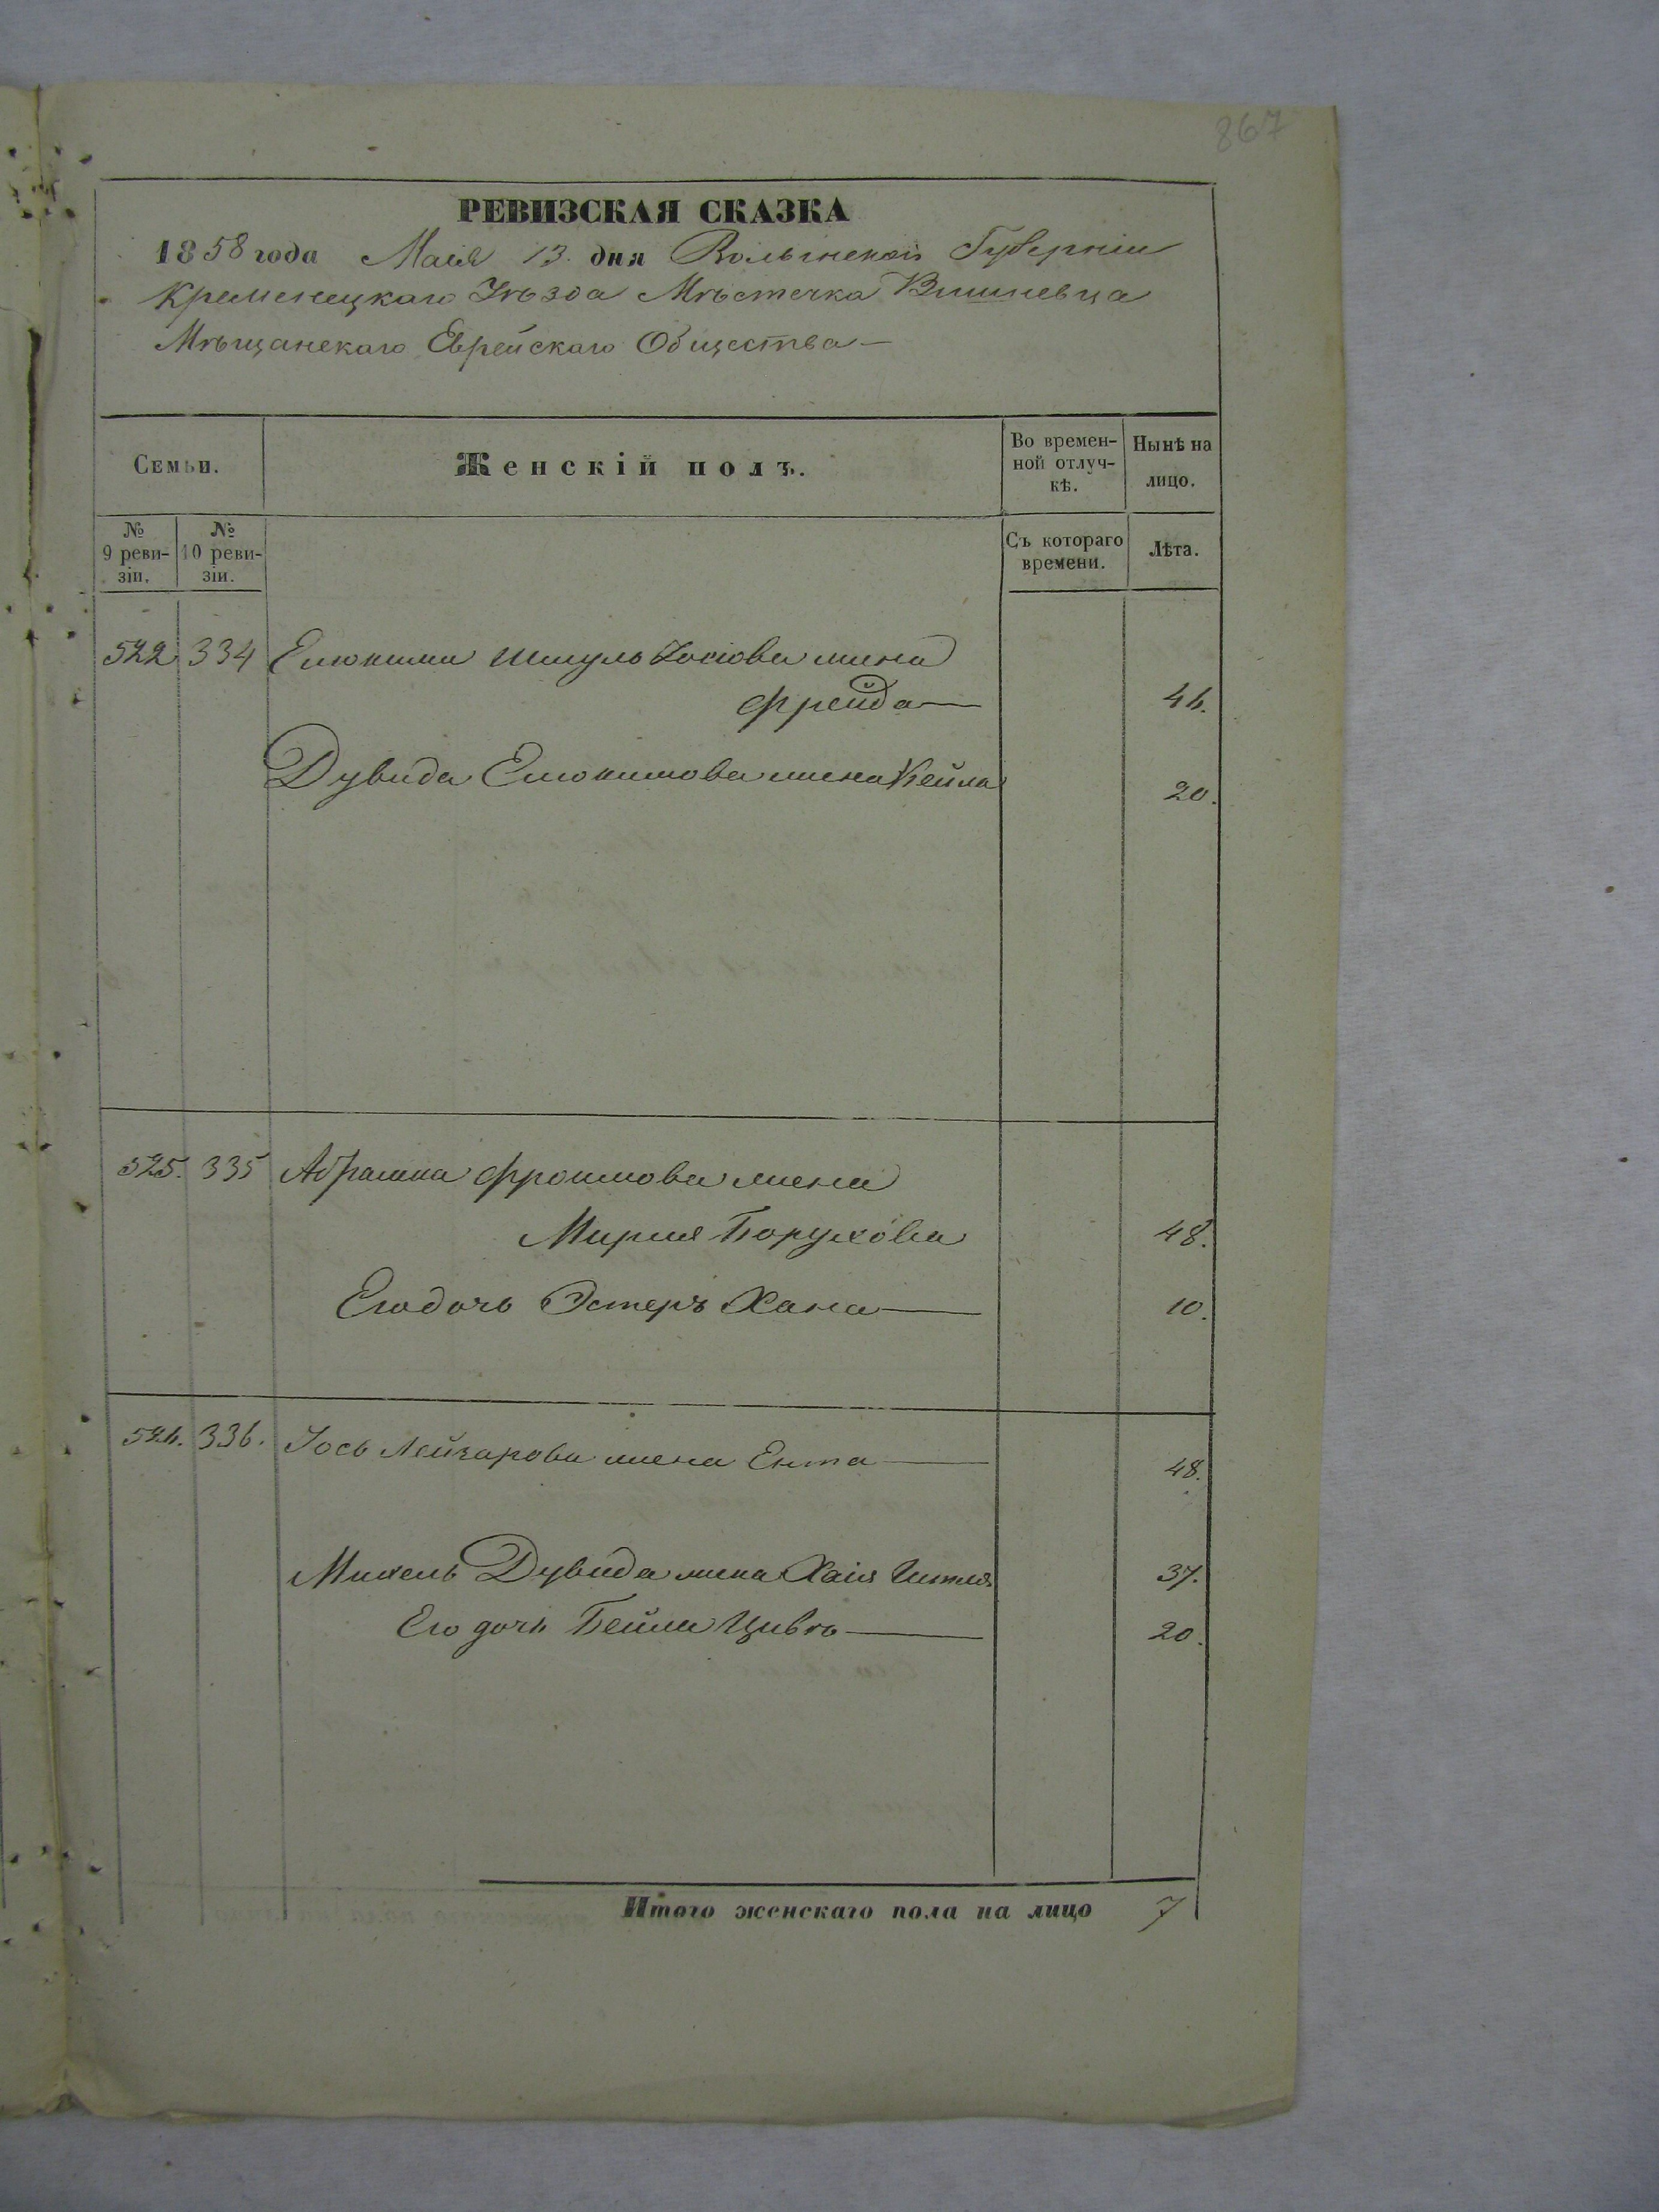 867
РЕВИЗСКАЯ СКАЗКА
1858 года Маія 13. дня Волынской Губерніи
Кременецкаго Уѣзда Мѣстечка Вишневца
Мѣщанскаго Еврейскаго Общества—
Семьи.
Женскій полъ.
Во времен-
ной отлуч-
кѣ.
Нынѣ на
лицо.
№
9 реви-
зіи.
№
10 реви-
зіи.
Съ котораго
времени.
Лѣта.
522 334 Шмуль Іосіова жена
Фрейда— 46.
Дувида жена Кейла 20.
525. 335 Абрамка Фроимова жена
Мирля Борухова 48.
Его дочь Эстеръ Хана— 10.
526. 336. Іось Лейзарова жена Ента— 48.
Михель Дувида жена Хаія 37.
Его дочь Бейла Цивя— 20.
Итого женскаго пола на лицо 7